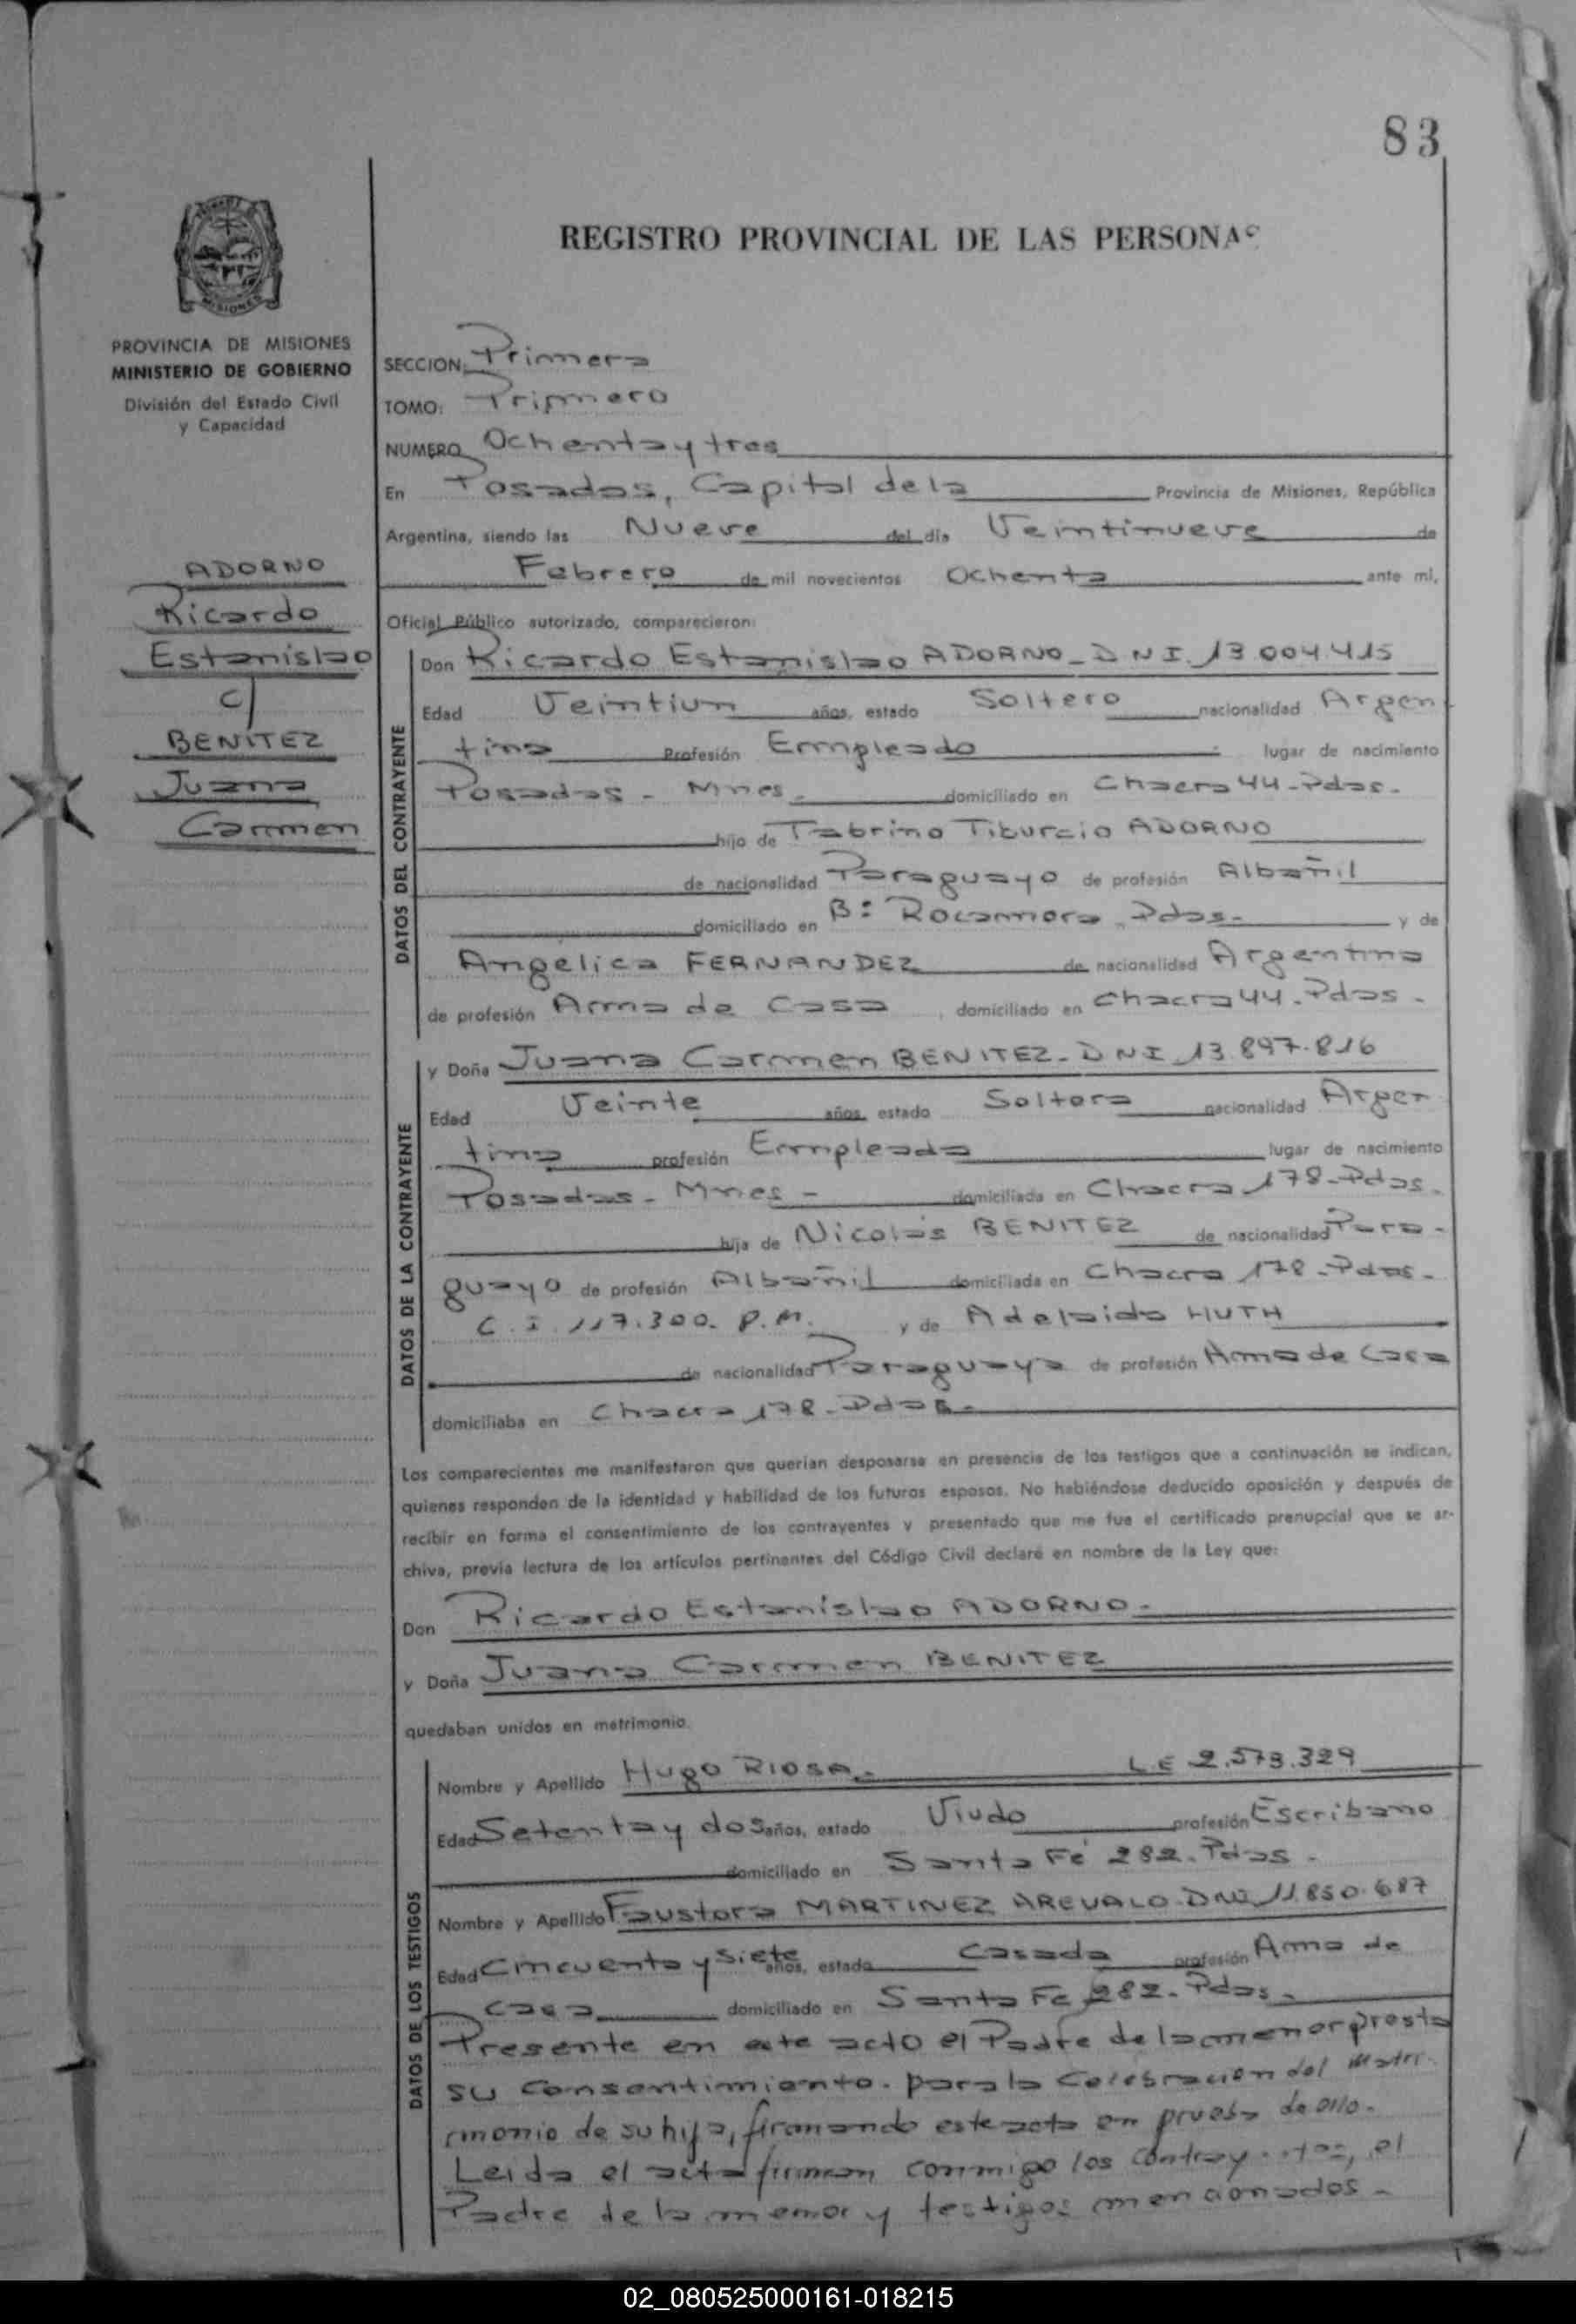 83
REGISTRO PROVINCIAL DE LAS PERSONAS
MISIONES
PROVINCIA DE MISIONES
MINISTERIO DE GOBIERNO
División del Estado Civil
y Capacidad
ADORNO
Ricardo
Estanislao
c/
BENITEZ
Juana
Carmen
SECCION: Primera
TOMO: Primero
NUMERO Ochenta y tres
En Posadas, Capital de la Provincia de Misiones, República
Argentina, siendo las Nueve del día Veintinueve de
Febrero de mil novecientos Ochenta ante mi,
Oficial Público autorizado, comparecieron:
DATOS DEL CONTRAYENTE
Don Ricardo Estanislao ADORNO - DNI. 13.004.415
Edad Veintiun años, estado Soltero nacionalidad Argen
tina Profesión Empleado lugar de nacimiento
Posadas - Mnes. domiciliado en Chacra 44 - Pdas.
hijo de Fabrino Tiburcio ADORNO
de nacionalidad Paraguayo de profesión Albañil
domiciliado en B: Rocamora, Pdas. y de
Angelica FERNANDEZ de nacionalidad Argentina
de profesión Ama de Casa, domiciliado en Chacra 44 - Pdas.
DATOS DE LA CONTRAYENTE
y Doña Juana Carmen BENITEZ - DNI 13.897.816
Edad Veinte años, estado Soltera nacionalidad Argen
tina profesión Empleada lugar de nacimiento
Posadas - Mnes - domiciliada en Chacra 178 - Pdas.
hija de Nicolás BENITEZ de nacionalidad Para-
guayo de profesión Albañil domiciliada en Chacra 178 - Pdas.
C. I. 117.300. P.M. y de Adelaida HUTH
de nacionalidad Paraguaya de profesión Ama de Casa
domiciliaba en Chacra 178 - Pdas.
Los comparecientes me manifestaron que querían desposarse en presencia de los testigos que a continuación se indican,
quienes responden de la identidad y habilidad de los futuros esposos. No habiéndose deducido oposición y después de
recibir en forma el consentimiento de los contrayentes y presentado que me fue el certificado prenupcial que se ar-
chiva, previa lectura de los artículos pertinentes del Código Civil declaré en nombre de la Ley que:
Don Ricardo Estanislao ADORNO.
y Doña Juana Carmen BENITEZ
quedaban unidos en matrimonio.
DATOS DE LOS TESTIGOS
Nombre y Apellido Hugo RIOSA. LE 2.573.329
Edad Setenta y dos años, estado Viudo profesión Escribano
domiciliado en Santa Fé 282 - Pdas.
Nombre y Apellido Faustora MARTINEZ AREVALO - DNI 11.850.687
Edad Cincuenta y Siete años, estado Casada profesión Ama de
Casa domiciliado en Santa Fe 282 - Pdas.
Presente en este acto el Padre de la menor presta
su consentimiento. para la Celebración del Matri-
monio de su hija, firmando este acta en prueba de ello.
Leida el acta firman conmigo los Contrayentes, el
Padre de la menor y testigos mencionados -
02_080525000161-018215